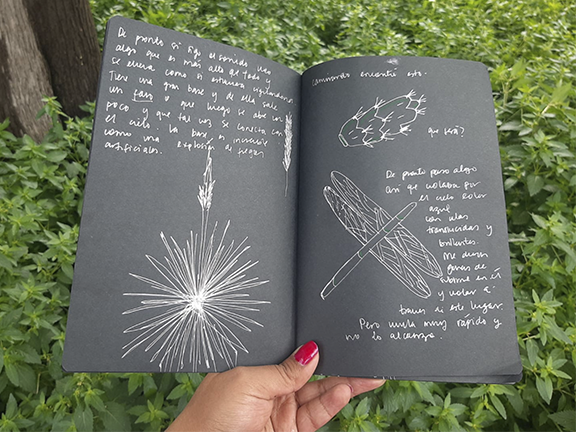 De pronto si sigo el sonido veo
algo que es más alto que todo y
se eleva como si estuviera vigilando
Tiene una gran base y de ella sale
un faro o que luego se abre un
poco y que tal vez se conecta con
el cielo. La base es increíble
como una explosión de fuegos
artificiales.
Caminando encuentro esto.
que será?
De pronto paso algo
así que volaba por
el cielo color
azul
con alas
translucidas y
brillantes.
Me dieron
ganas de
en él
y volar a
traves de este lugar
Pero vuela muy rápido y
no lo alcanzo.